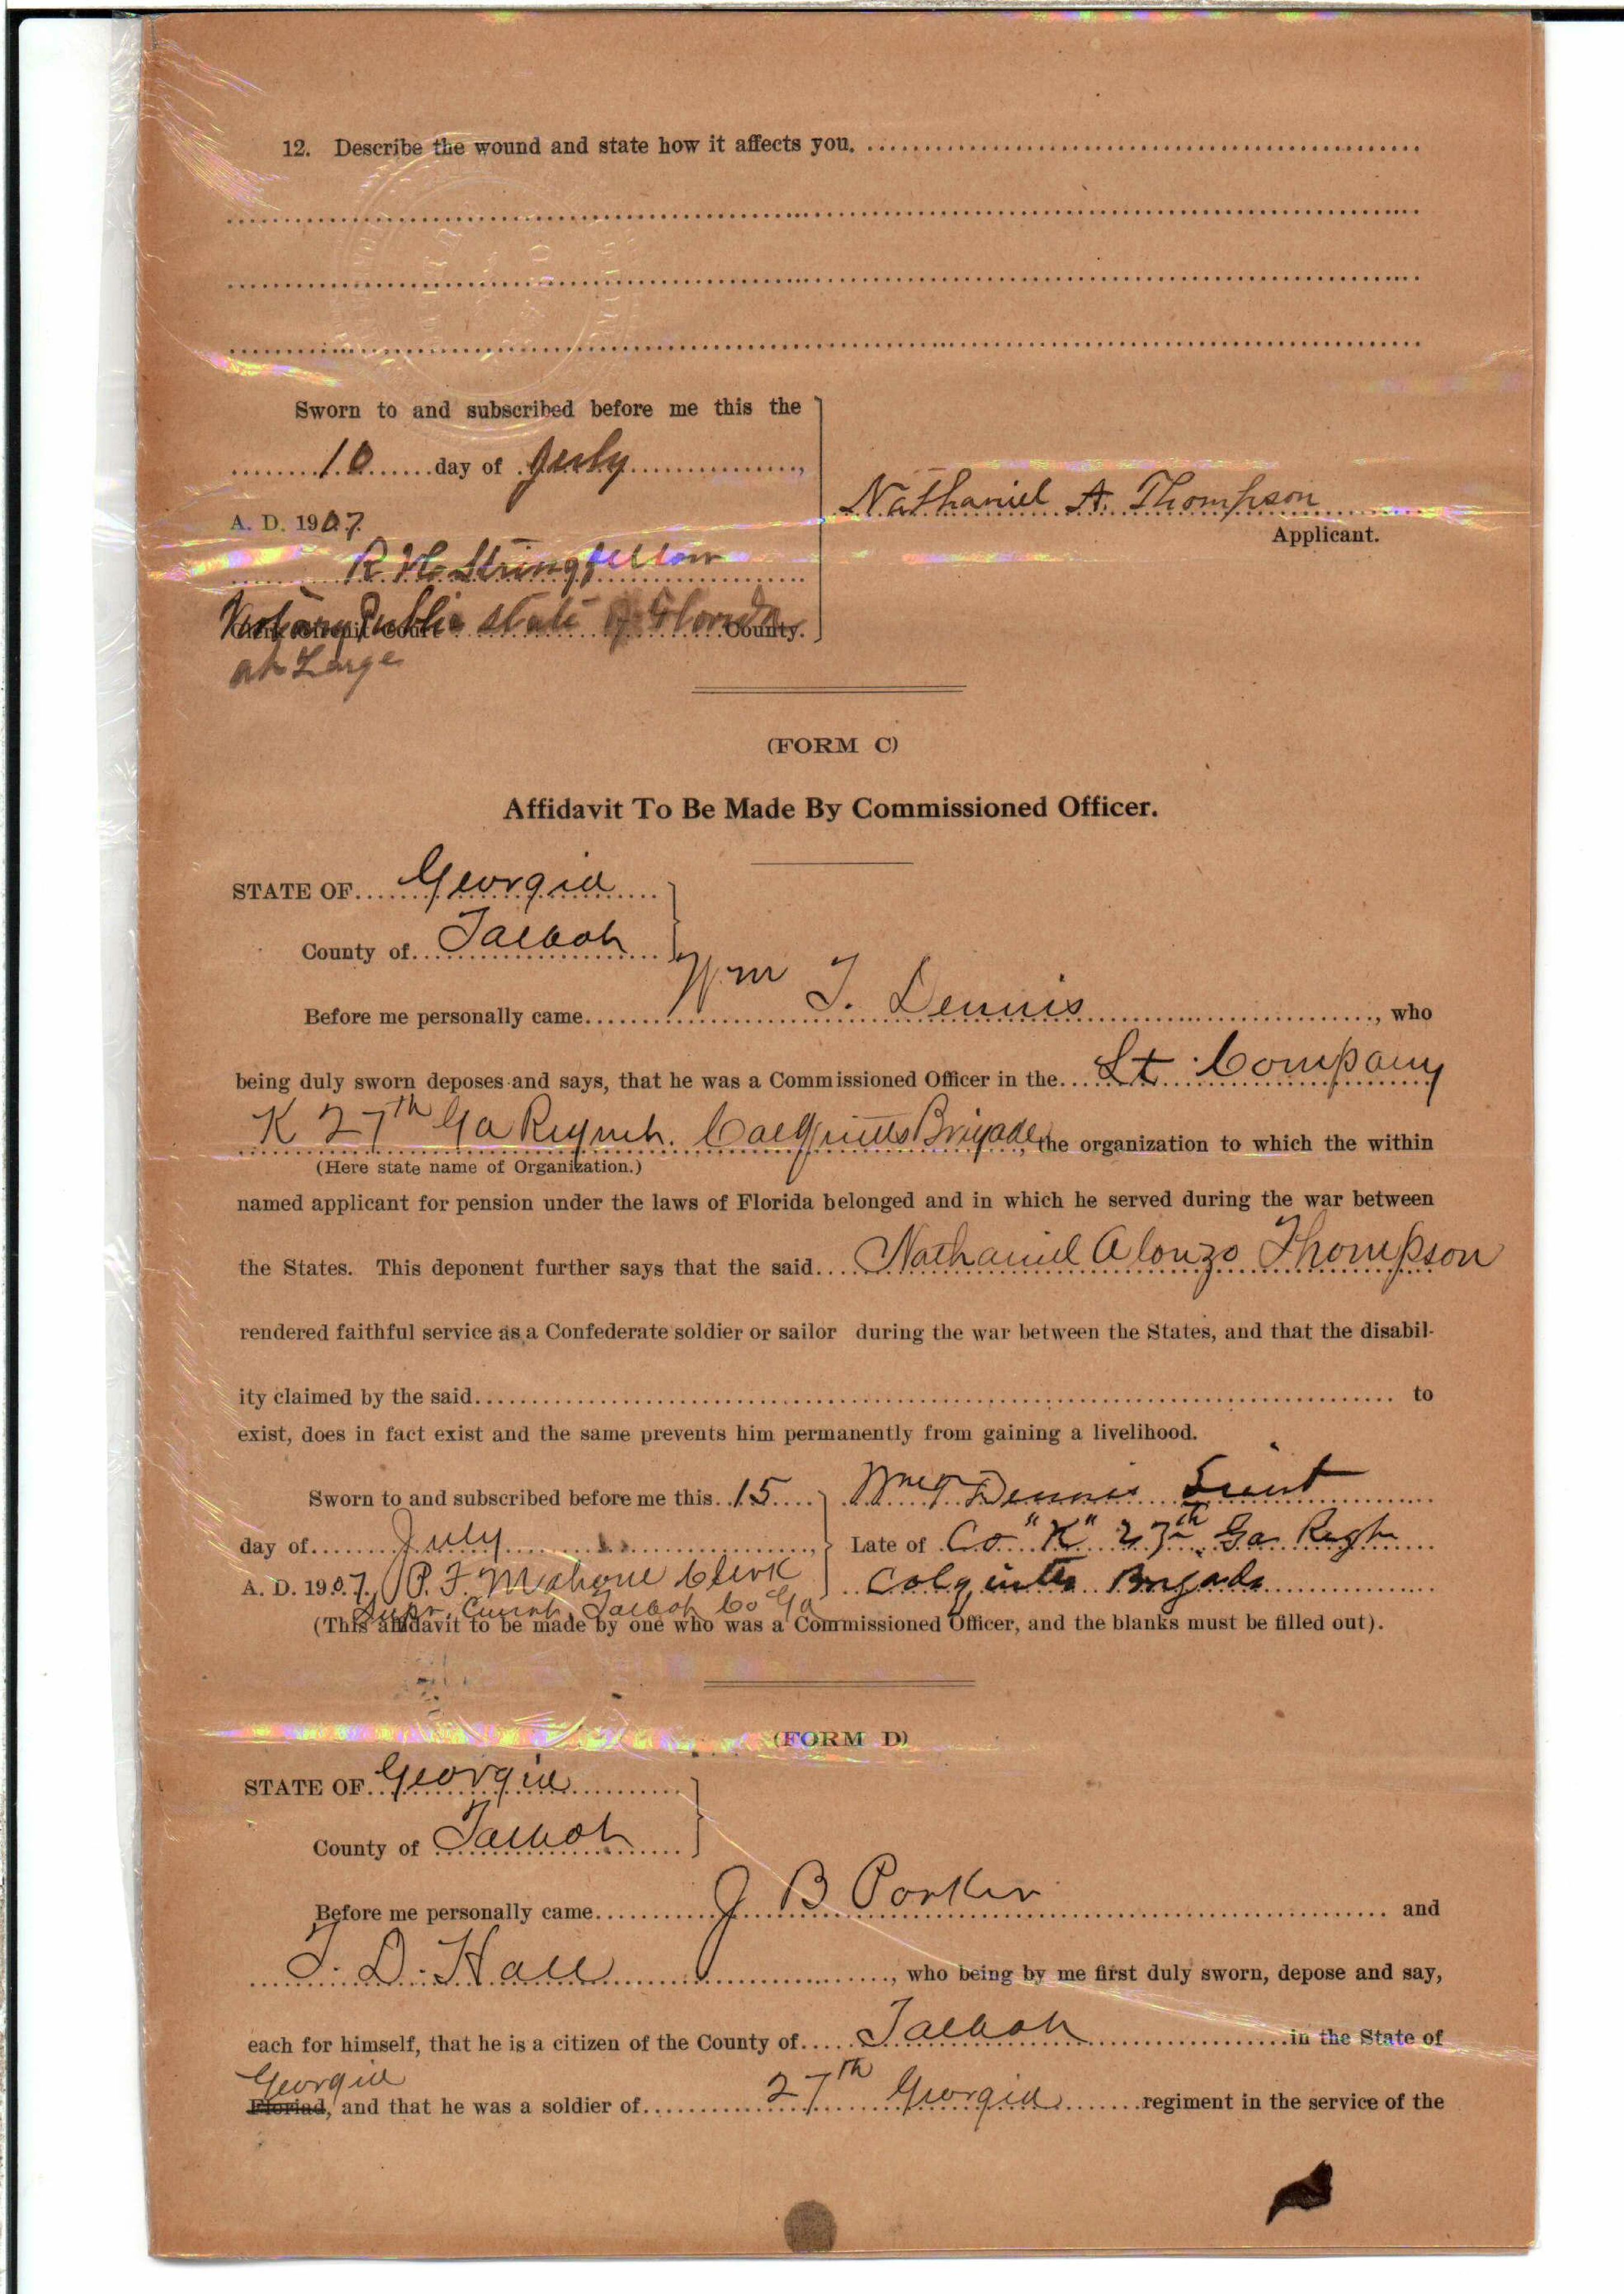 12. Describe the wound and state how it affects you.
Sworn to and subscribed before me this the
10 day of July,
A. D. 1907
Nathaniel A. Thompson
Applicant.
R. H. Stringfellow
Notary Public State of Florida County.
at Large
(FORM C)
Affidavit To Be Made By Commissioned Officer.
STATE OF Georgia
County of Talbot
Before me personally came Wm T. Dennis, who
being duly sworn deposes and says, that he was a Commissioned Officer in the Lt. Company
K 27th Ga Regmt. Colquitts Brigade, the organization to which the within
(Here state name of Organization.)
named applicant for pension under the laws of Florida belonged and in which he served during the war between
the States. This deponent further says that the said Nathaniel Alonzo Thompson
rendered faithful service as a Confederate soldier or sailor during the war between the States, and that the disabil-
ity claimed by the said to
exist, does in fact exist and the same prevents him permanently from gaining a livelihood.
Sworn to and subscribed before me this 15 Wm T Dennis Lieut
day of July, Late of Co "K" 27th Ga Regt
A. D. 1907, P. F. Mahone Clerk Colquitts Brigade
Supr. Court, Talbot Co Ga
(This affidavit to be made by one who was a Commissioned Officer, and the blanks must be filled out).
(FORM D)
STATE OF Georgia
County of Talbot
Before me personally came J B Parker and
T. D. Hall, who being by me first duly sworn, depose and say,
each for himself, that he is a citizen of the County of Talbot in the State of
Georgia
Floriad, and that he was a soldier of 27th Georgia regiment in the service of the